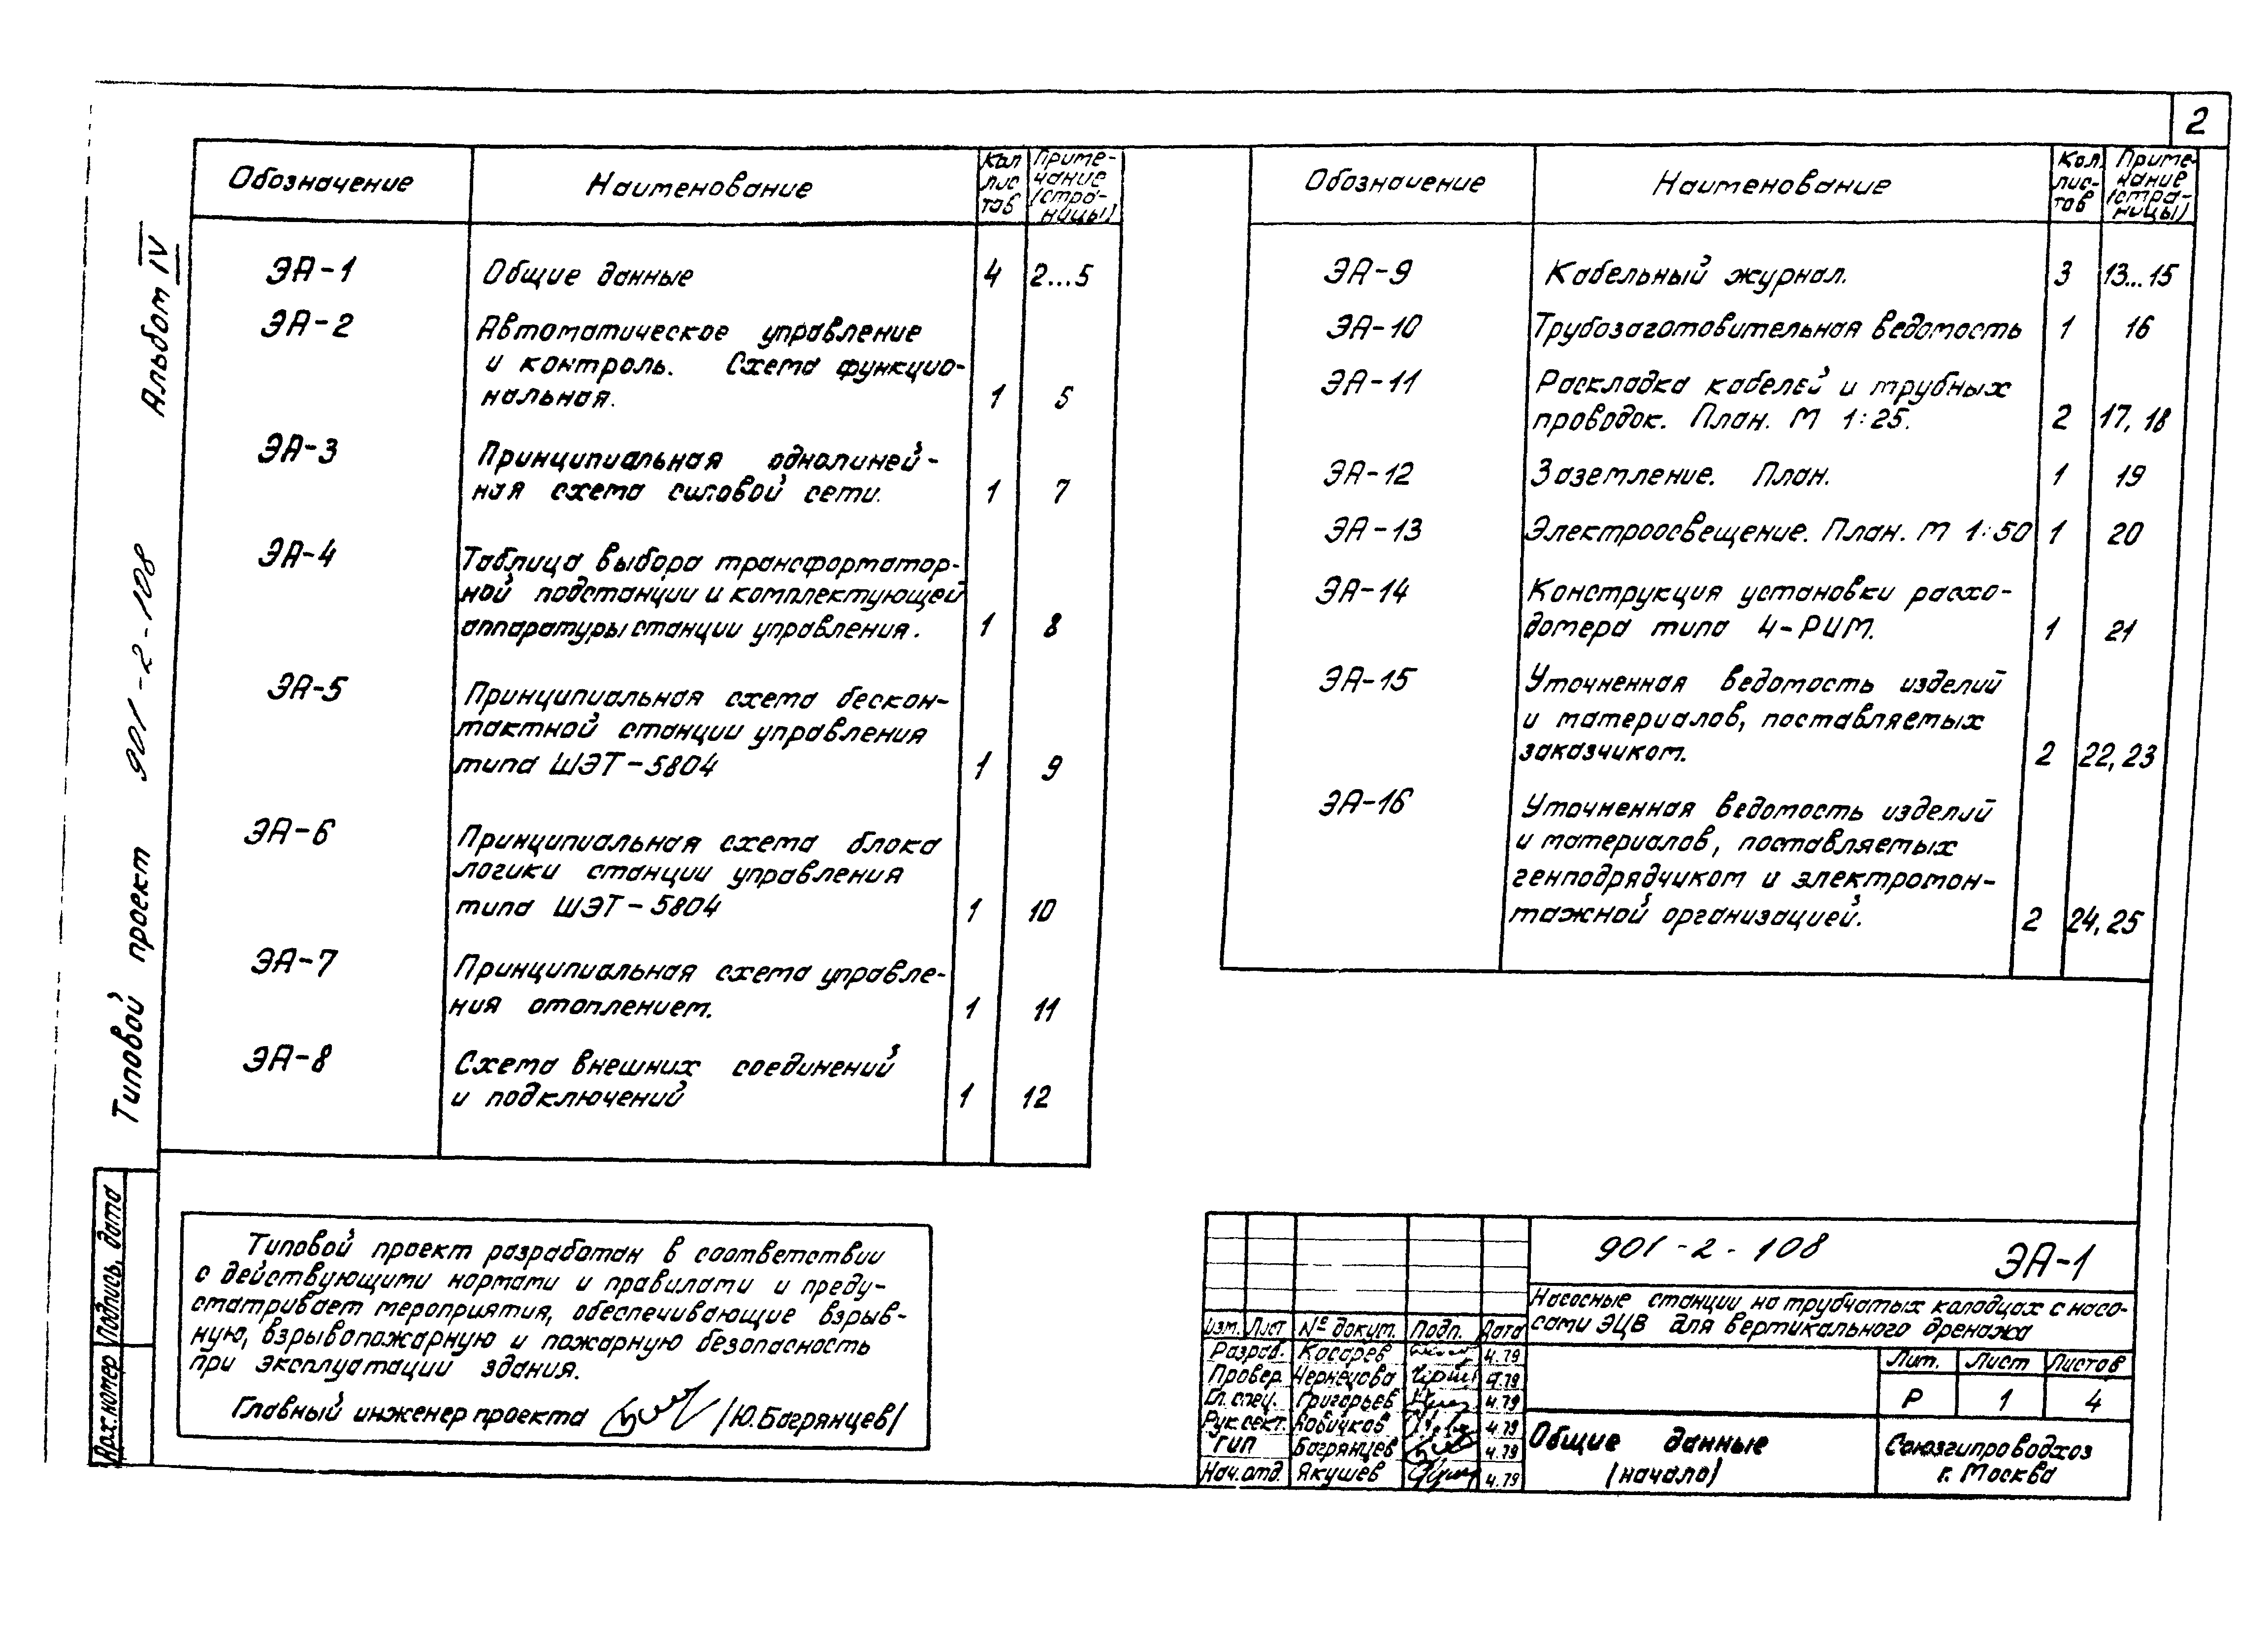 2
Альбом IV
Типовой проект 901-2-108
Подпись, дата
Арх. номер
Обозначение Наименование Кол лис тов Приме-чание (стра-ницы)
ЭА-1 Общие данные 4 2...5
ЭА-2 Автоматическое управление
и контроль. Схема функцио-
нальная. 1 5
ЭА-3 Принципиальная однолиней-
ная схема силовой сети. 1 7
ЭА-4 Таблица выбора трансформатор-
ной подстанции и комплектующей
аппаратуры станции управления. 1 8
ЭА-5 Принципиальная схема бескон-
тактной станции управления
типа ШЭТ-5804 1 9
ЭА-6 Принципиальная схема блока
логики станции управления
типа ШЭТ-5804 1 10
ЭА-7 Принципиальная схема управле-
ния отоплением. 1 11
ЭА-8 Схема внешних соединений
и подключений 1 12
Обозначение Наименование Кол. лис-тов Приме-чание (стра-ницы)
ЭА-9 Кабельный журнал. 3 13...15
ЭА-10 Трубозаготовительная ведомость 1 16
ЭА-11 Раскладка кабелей и трубных
проводок. План. М 1:25. 2 17, 18
ЭА-12 Заземление. План. 1 19
ЭА-13 Электроосвещение. План. М 1:50 1 20
ЭА-14 Конструкция установки расхо-
домера типа 4-РИМ. 1 21
ЭА-15 Уточненная ведомость изделий
и материалов, поставляемых
заказчиком. 2 22, 23
ЭА-16 Уточненная ведомость изделий
и материалов, поставляемых
генподрядчиком и электромон-
тажной организацией. 2 24, 25
Типовой проект разработан в соответствии
с действующими нормами и правилами и преду-
сматривает мероприятия, обеспечивающие взрыв-
ную, взрывопожарную и пожарную безопасность
при эксплуатации здания.
Главный инженер проекта /Ю.Багрянцев/
901-2-108 ЭА-1
Насосные станции на трубчатых колодцах с насо-
сами ЭЦВ для вертикального дренажа
Изм. Лист № докум. Подп. Дата
Разраб. Касарев 4.79
Провер. Чернецова 4.79
Гл. спец. Григорьев 4.79
Рук. сект. 4.79
ГИП Багрянцев 4.79
Нач. отд. Якушев 4.79
Лит. Лист Листов
Р 1 4
Общие данные
(начало)
Союзгипроводхоз
г. Москва